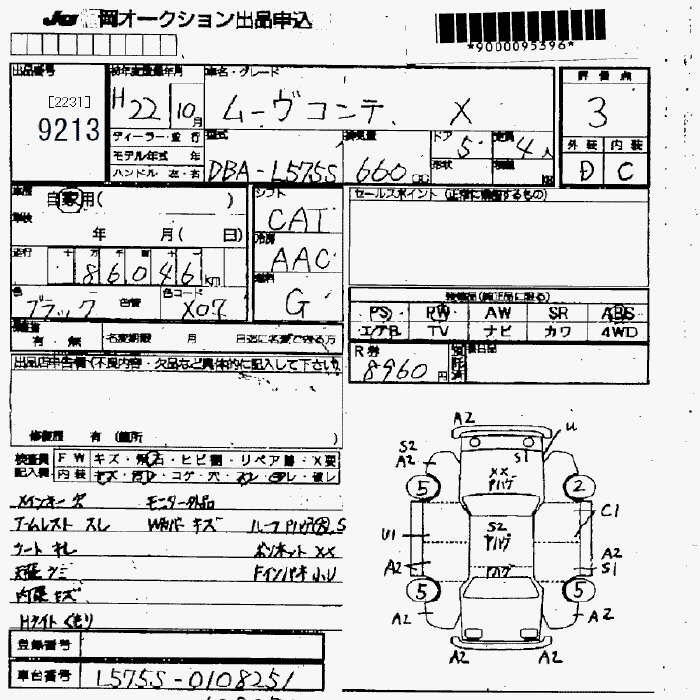 JU 福岡オークション出品申込
*9000095396*
出品番号
[2231]
9213
初年度登録年月
H22 10月
車名・グレード
ムーヴコンテ X
評価点
3
外装 内装
D C
ディーラー・並行
モデル年式 年
ハンドル 左・右
型式
DBA-L575S
排気量
660 cc
ドア
5
形状
定員
4人
積載
kg
車歴
自家用( )
車検
年 月( 日)
走行
十 万 千 百 十 一
86046 km
色
ブラック
色替
色コード
X07
シフト
CAT
冷房
AAC
燃料
G
セールスポイント (正常に機能するもの)
装備品(純正品に限る)
PS RW AW SR ABS
エアB TV ナビ カワ 4WD
R券
8960円
預託済
有・無
名変期限 月 日迄に名変できる方
出品店申告欄(不良内容・欠品など具体的に記入して下さい)
修復歴 有 (箇所 )
検査員記入欄
FW キズ・飛石・ヒビ割・リペア跡・X要
内装 キズ・汚レ・コゲ・穴・スレ・切レ・破レ
メインキーズ モニター外品
アームレスト スレ Wカバー キズ
シート キレ ボンネット XX
天張 シミ
内張 キズ
Hライト くもり
登録番号
車台番号
L575S-0108251
A2
U
S2
A2
S1
XX
Pハゲ
5
2
C1
U1
S2
Pハゲ
A2
A2
S1
Pハゲ
5
5
A2
A2
A2
A2